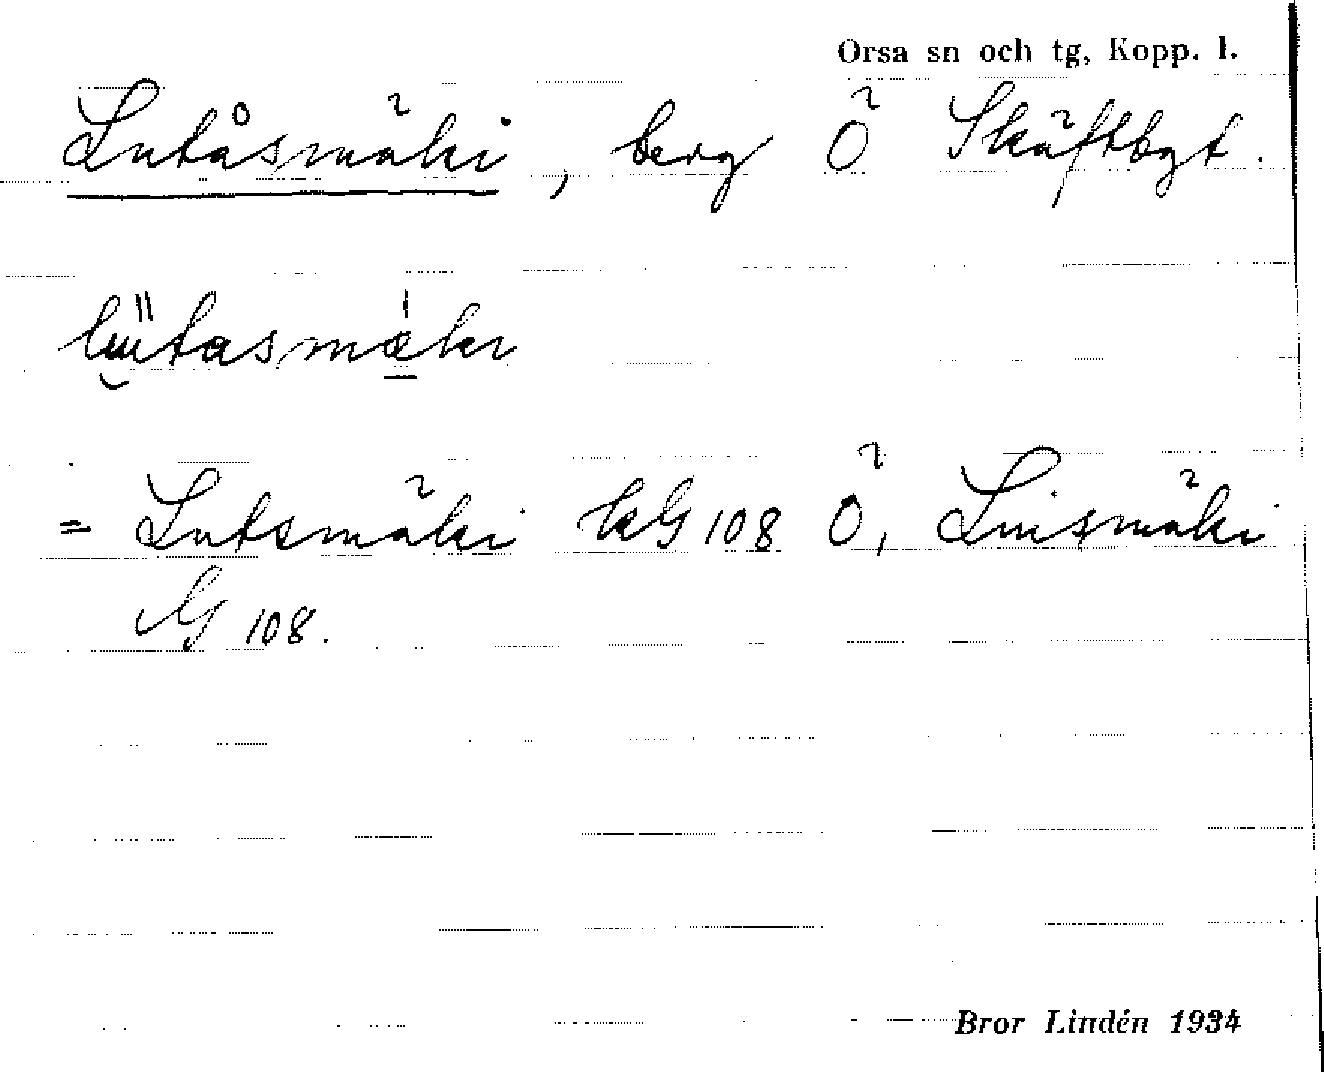 Orsa sn och tg, Kopp. l.
Lutåsmäki, berg Ö Skäftbyt.
lutasmäki
= Lutsmäki kG 108 Ö, Luismäki
G 108.
Bror Lindén 1934